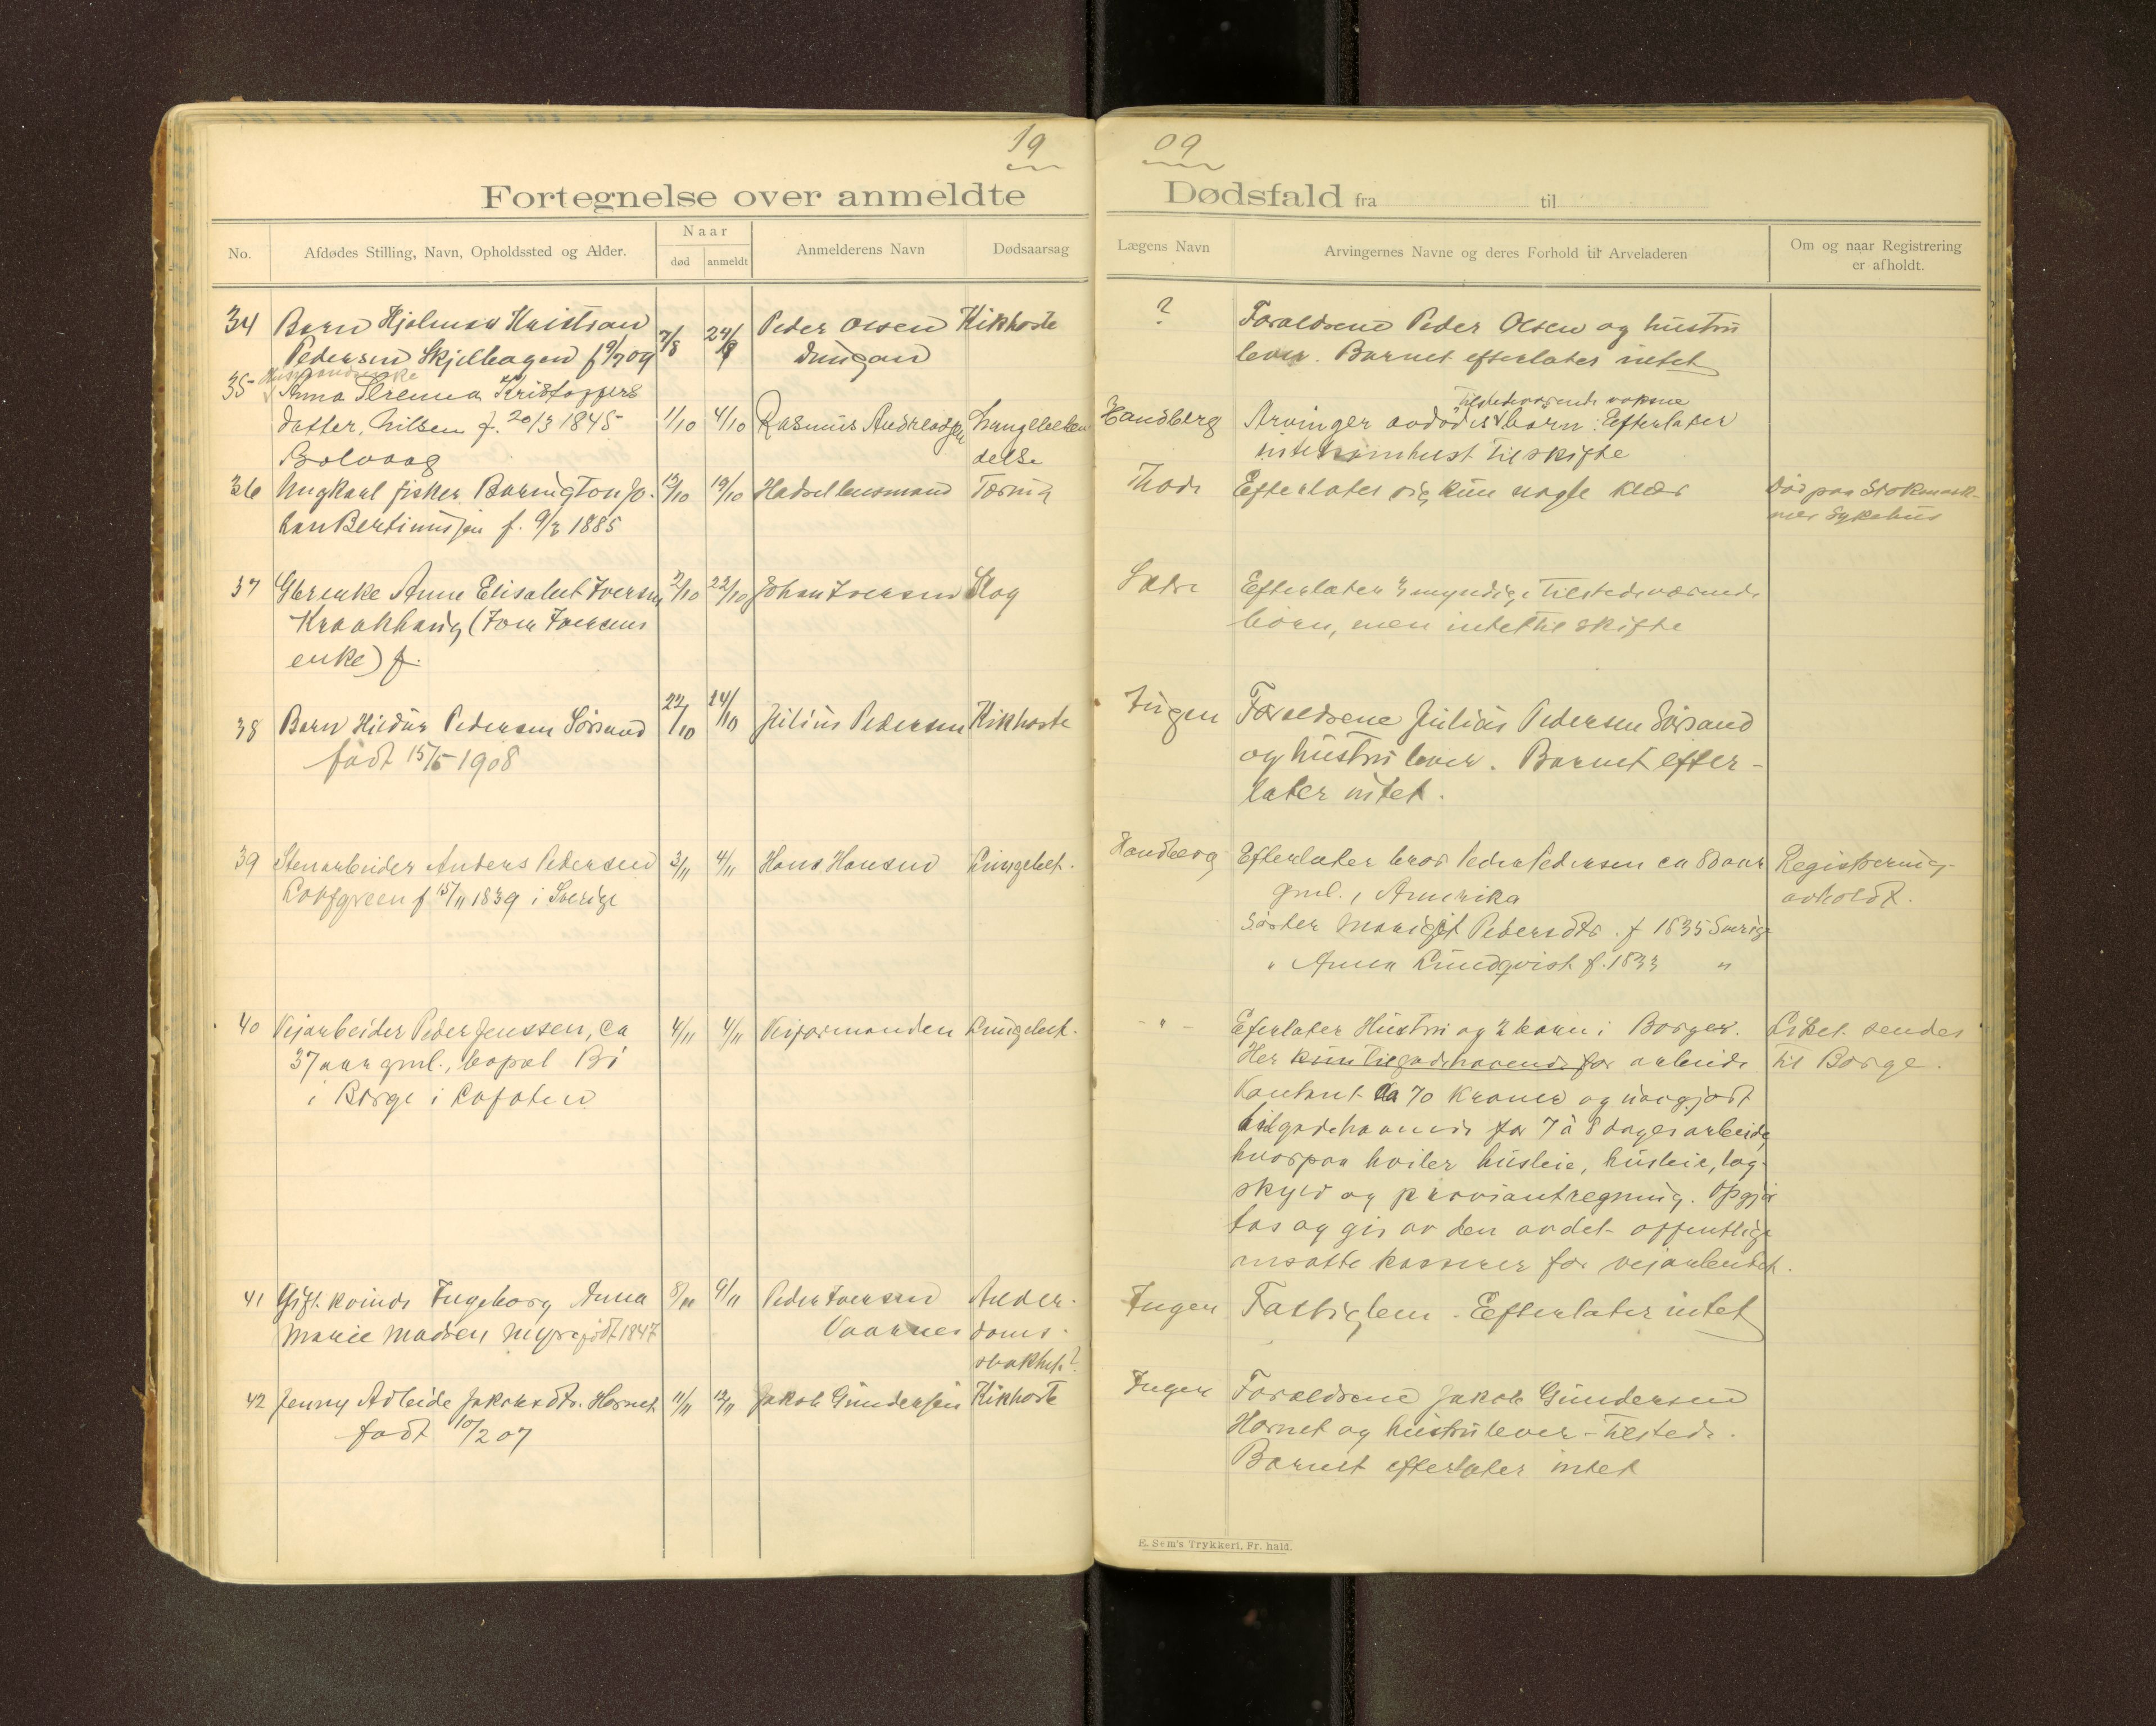 19 09
Fortegnelse over anmeldte Dødsfald fra til
No.
Afdødes Stilling, Navn, Opholdssted og Alder.
Naar
død
anmeldt
Anmelderens Navn
Dødsaarsag
Lægens Navn
Arvingernes Navne og deres Forhold til Arveladeren
Om og naar Registrering
er afholdt.
34 Barn Hjalmar Kristian 7/8 24/8 Peder Olsen Kikhoste ? Forældrene Peder Olsen og hustru
Pedersen Skjelhagen f 9/7 09 lever. Barnet efterlater intet
35 Anna Serenna Kristoffers tilstedeværende voksne
datter, Nilsen f. 20/3 1845 1/10 4/10 Rasmus Andreassen Lungebeten Sandberg Arvinger avdødes børn. Efterlater
Bolvaag delse intet til skifte
36 Ungkarl fisker Barington Jo- 12/10 19/10 Hadsel lensmand Tæring Thode Efterlater sig kun nogle klær Død paa Stokmark-
han Bertinussen f. 9/3 1885 nes Sykehus
37 Anne Elisabet Iversen 2/10 22/10 Johan Iversen Slag Sætre Efterlater 3 myndige tilstedeværende
Kraakhaug (Iver Iversens børn, men intet til skifte
enke) f.
38 Barn Hildur Pedersen Sørsand 22/10 24/10 Julius Pedersen Kikhoste Ingen Forældrene Julius Pedersen Sørsand
født 15/5 1908 og hustru lever. Barnet efter-
later intet.
39 Stenarbeider Anders Pedersen 3/11 4/11 Hans Hansen Lungebet. Sandberg Efterlater bror Peder Pedersen ca 80 aar Registrering
Løvfgreen f 15/11 1839 i Sverige gml. i Amerika avholdt.
Søster Marigit Pedersdtr. f 1835 Sverige
" Anna Lundqvist f. 1833 "
40 Veiarbeider Peder Jenssen, ca 4/11 4/11 Veiformanden Lungebet. - " - Efterlater Hustru og 2 barn i Borge. Liket sendes
37 aar gml., bopæl Bø Her kun tilgodehavende for arbeide til Borge.
i Borge i Lofoten Kontant ca 70 kroner og uopgjort
tilgodehavende for 7 à 8 dages arbeide,
hvorpaa hviler husleie, husleie, lag-
skyld og proviantregning. Opgjø
tas og gis av den av det offentlige
ansatte kasserer for veiarbeidet.
41 Gift kvinde Ingeborg Anna 8/11 9/11 Peder Iversen Alder- Ingen Fattiglem. Efterlater intet
Marie Madsen Myre født 1847 Vaarnes doms-
svakhet?
42 Jenny Adleide Jakobsdtr. Hornet 11/11 12/11 Jakob Gundersen Kikhoste Ingen Forældrene Jakob Gundersen
født 10/2 07 Hornet og hustru lever - tilstede.
Barnet efterlater intet
E. Sem's Trykkeri, Fr. hald.